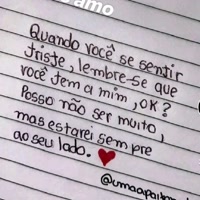 amo
Quando você se sentir
triste, lembre-se que
você tem a mim, ok?
Posso não ser muito,
mas estarei sempre
ao seu lado.